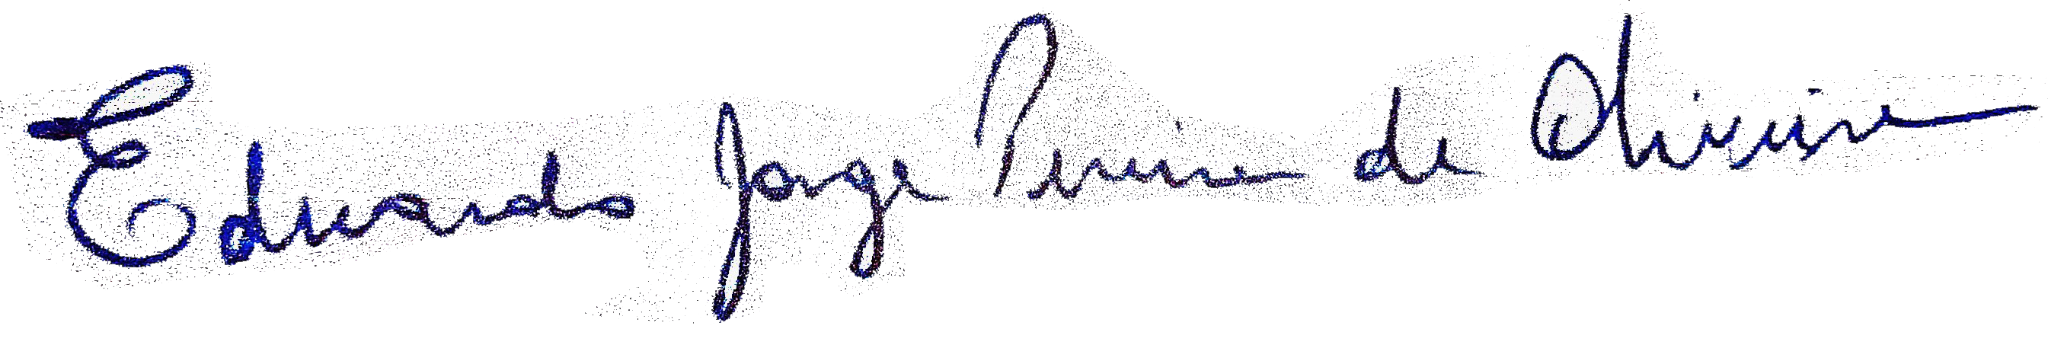 Eduardo Jorge Pereira de Oliveira